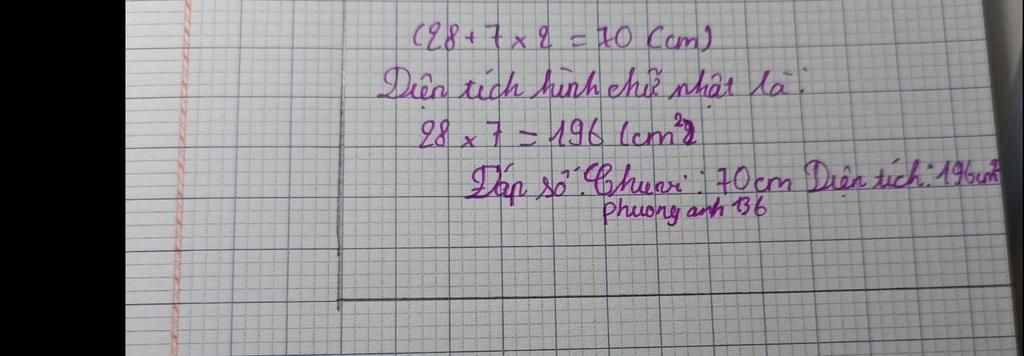 (28 + 7 x 2 = 70 (cm)
Diện tích hình chữ nhật là:
28 x 7 = 196 (cm²)
Đáp số: Chu vi: 70cm Diện tích: 196cm²
Phuong anh 136